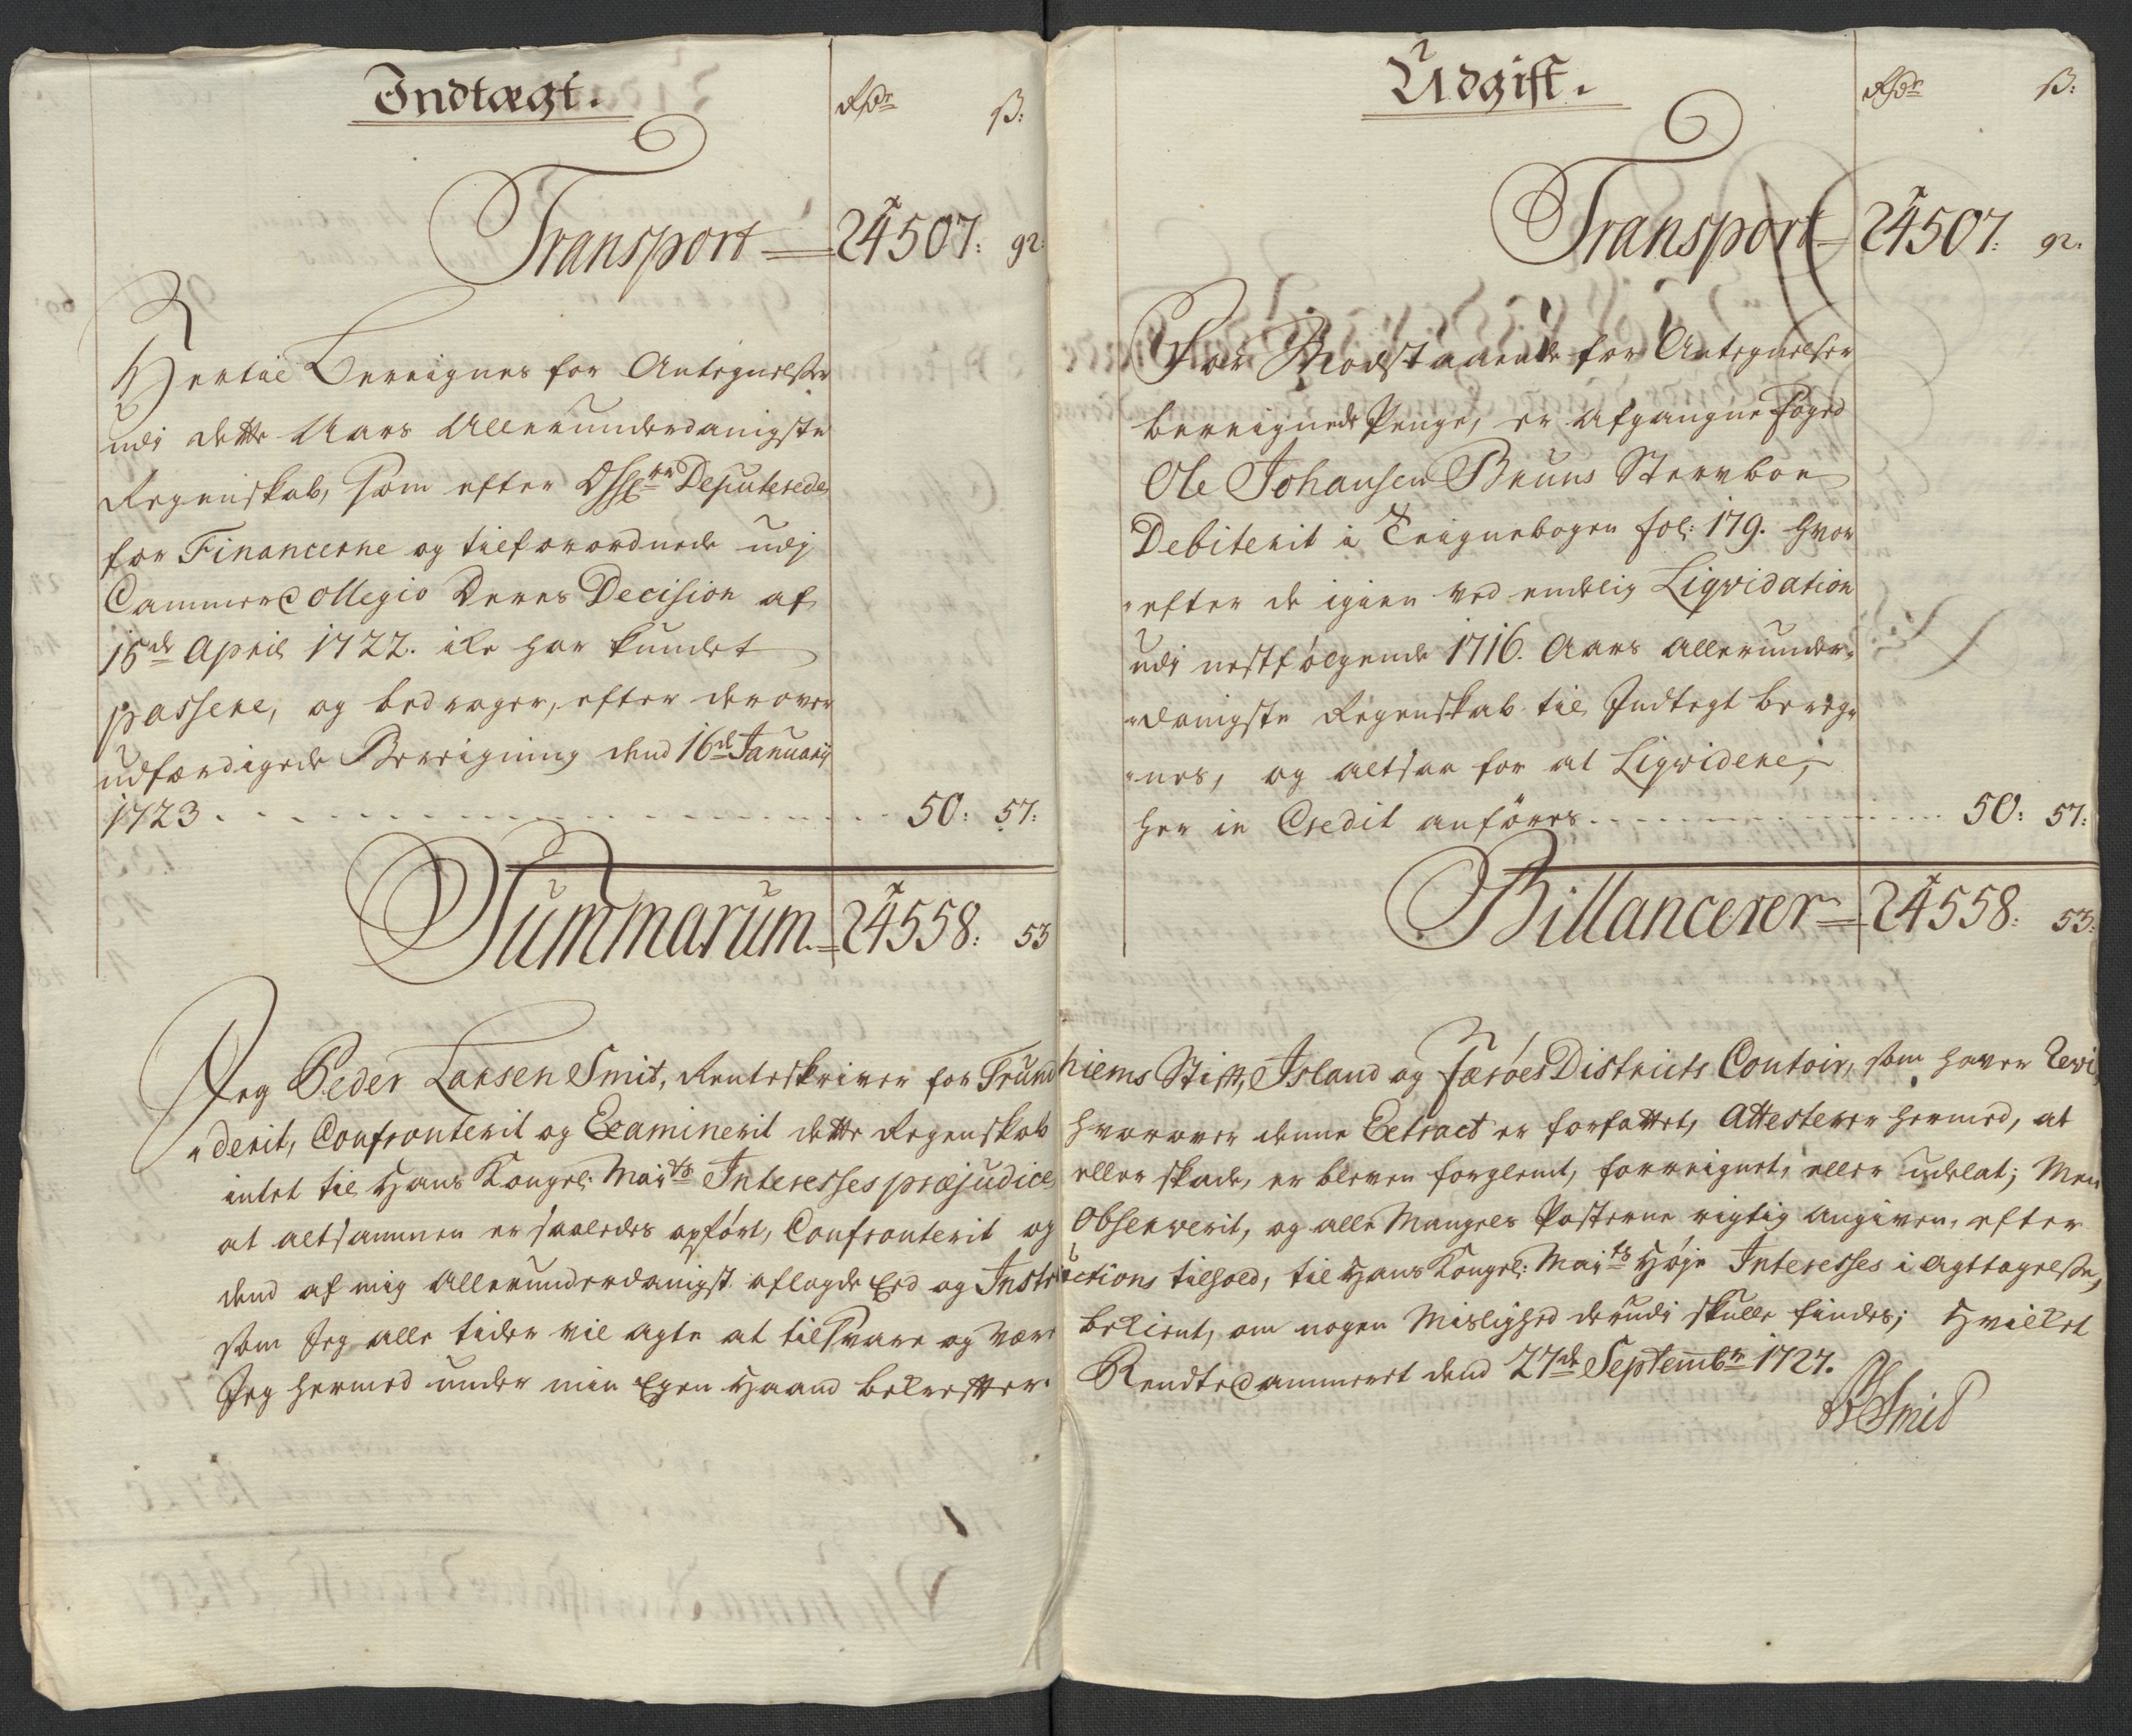 Indtægt.
Rdr ß:
Transport = 24507: 92:
Hertil Bereignes for Antegnelser
udi dette Aars Allerunderdanigste
Regenskab, som efter Deputerede
for Financerne og tilforordnede udj
CammerCollegio Deres Decision af
15de April 1722. iche har kundet
passere, og bedrager, efter derover
udfærdigede Bereigning dend 16de Januarij
1723 . . . 50: 57:
Summarum = 24558: 53
Udgift.
Rdr ß:
Transport = 24507: 92.
For Modstaaende for Antegnelser
bereignede Penge, er afgangne Foged
Ole Johansen Bruuns Sterboe
Debiterit i Reignebogen fol: 179. hvor
efter de igien ved endelig Liqvidation
udi nestfølgende 1716. Aars Allerunder-
danigste Regenskab til Indtegt bereg-
nes, og altsaa for at Liqvidere,
her in Credit anføres . . . 50: 57:
Billancerer = 24558: 53:
Jeg Peder Larsen Smit, Renteskriver for Trundhiems Stift, Island og Færöes Districts Contoir, som haver Revi-
derit, Confronterit og Examinerit dette Regenskab hvorover denne Extract er forfattet, Attesterer hermed, at
intet til Hans Kongel: Mayts Interesses præjudice eller skade, er bleven forglemt, forreignet, eller udelat; Men
at altsammen er saaledes opført, Confronterit og Observerit, og alle Mangels Posterne rigtig angiven, efter
dend af mig Allerunderdanigst aflagde Eed og Instructions tilhold, til Hans Kongel: Mayts Høje Interesses i agttagelse,
som Jeg alle tider vil agte at tilsvare og være bekient, om nogen Mislighed derudi skulle findes; Hvilket
Jeg hermed under min Egen Haand bekreffter. RendteCammeret dend 27de Septembr 1727.
PLSmid